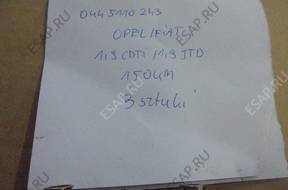 0445110243
OPEL/FIAT
1.9 CDTI / 1.9 JTD
150KM
3 sztuki
ESAP.RU
ESAP.RU
ESAP.RU
ESAP.RU